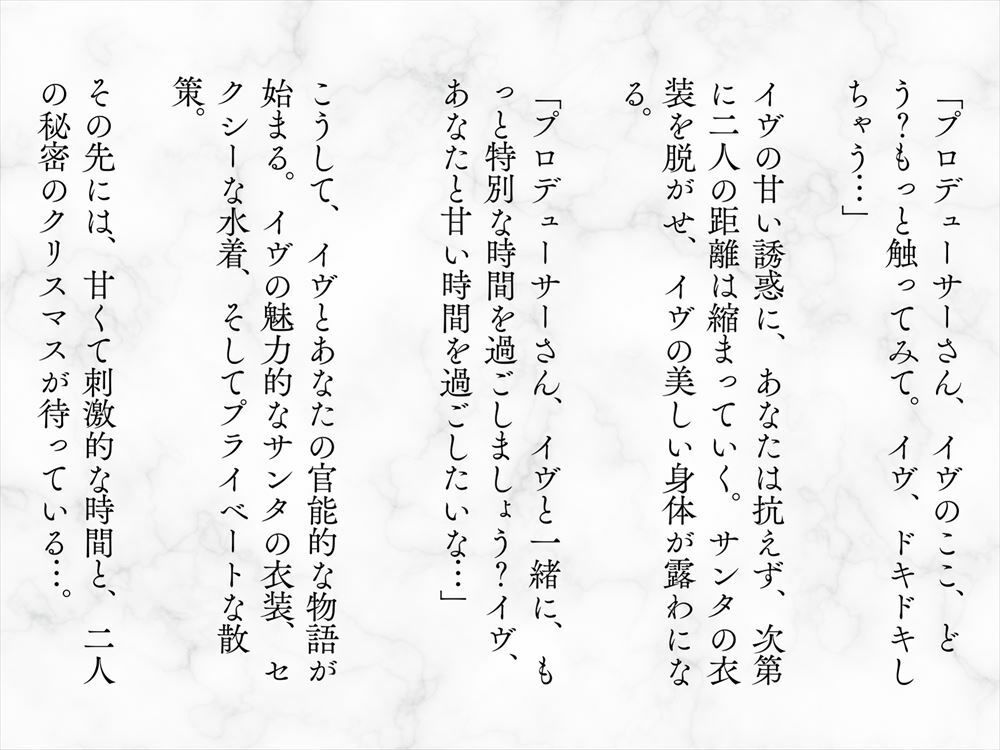 「プロデューサーさん、イヴのここ、ど
う？もっと触ってみて。イヴ、ドキドキし
ちゃう…」
イヴの甘い誘惑に、あなたは抗えず、次第
に二人の距離は縮まっていく。サンタの衣
装を脱がせ、イヴの美しい身体が露わにな
る。
「プロデューサーさん、イヴと一緒に、も
っと特別な時間を過ごしましょう？イヴ、
あなたと甘い時間を過ごしたいな…」
こうして、イヴとあなたの官能的な物語が
始まる。イヴの魅力的なサンタの衣装、セ
クシーな水着、そしてプライベートな散
策。
その先には、甘くて刺激的な時間と、二人
の秘密のクリスマスが待っている…。